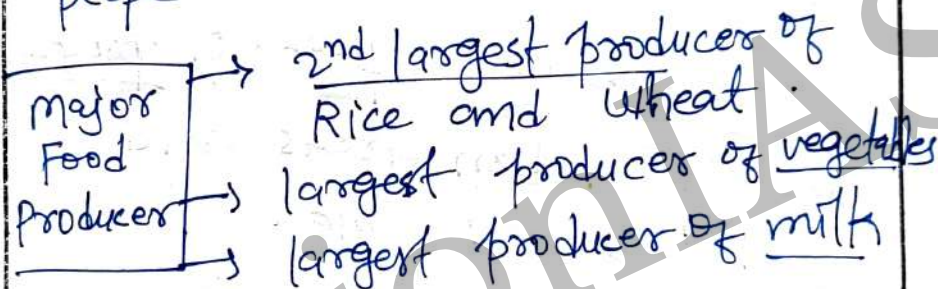 Major
Food
Producer
2nd largest producer of
Rice and wheat.
largest producer of vegetables
largest producer of milk